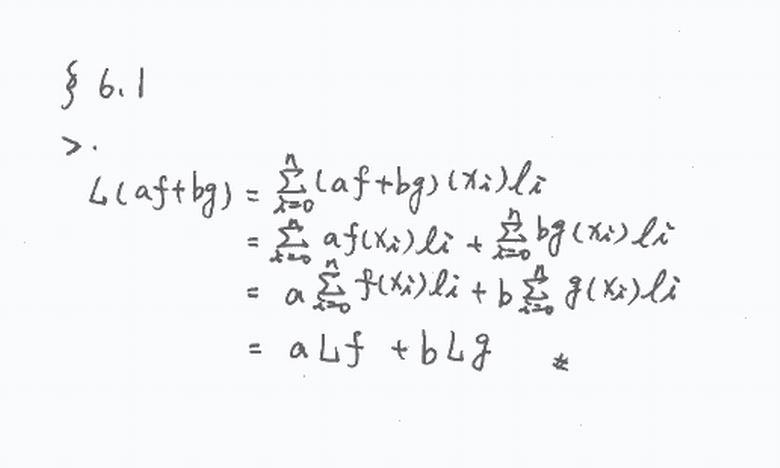 § 6.1
>.
L(af+bg) = \sum_{i=0}^{n} (af+bg)(x_i) l_i
= \sum_{i=0}^{n} af(x_i) l_i + \sum_{i=0}^{n} bg(x_i) l_i
= a \sum_{i=0}^{n} f(x_i) l_i + b \sum_{i=0}^{n} g(x_i) l_i
= a L f + b L g *